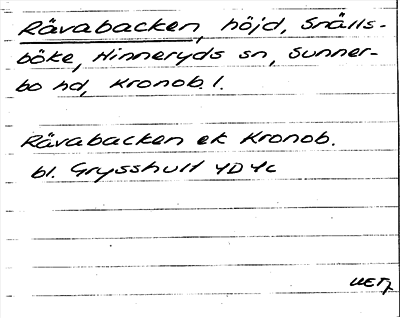 Rävabacken, höjd, Snälls-
böke, Hinneryds sn, Sunner-
bo hd, Kronob. l.
Rävabacken ek Kronob.
bl. Grysshult 4D4c